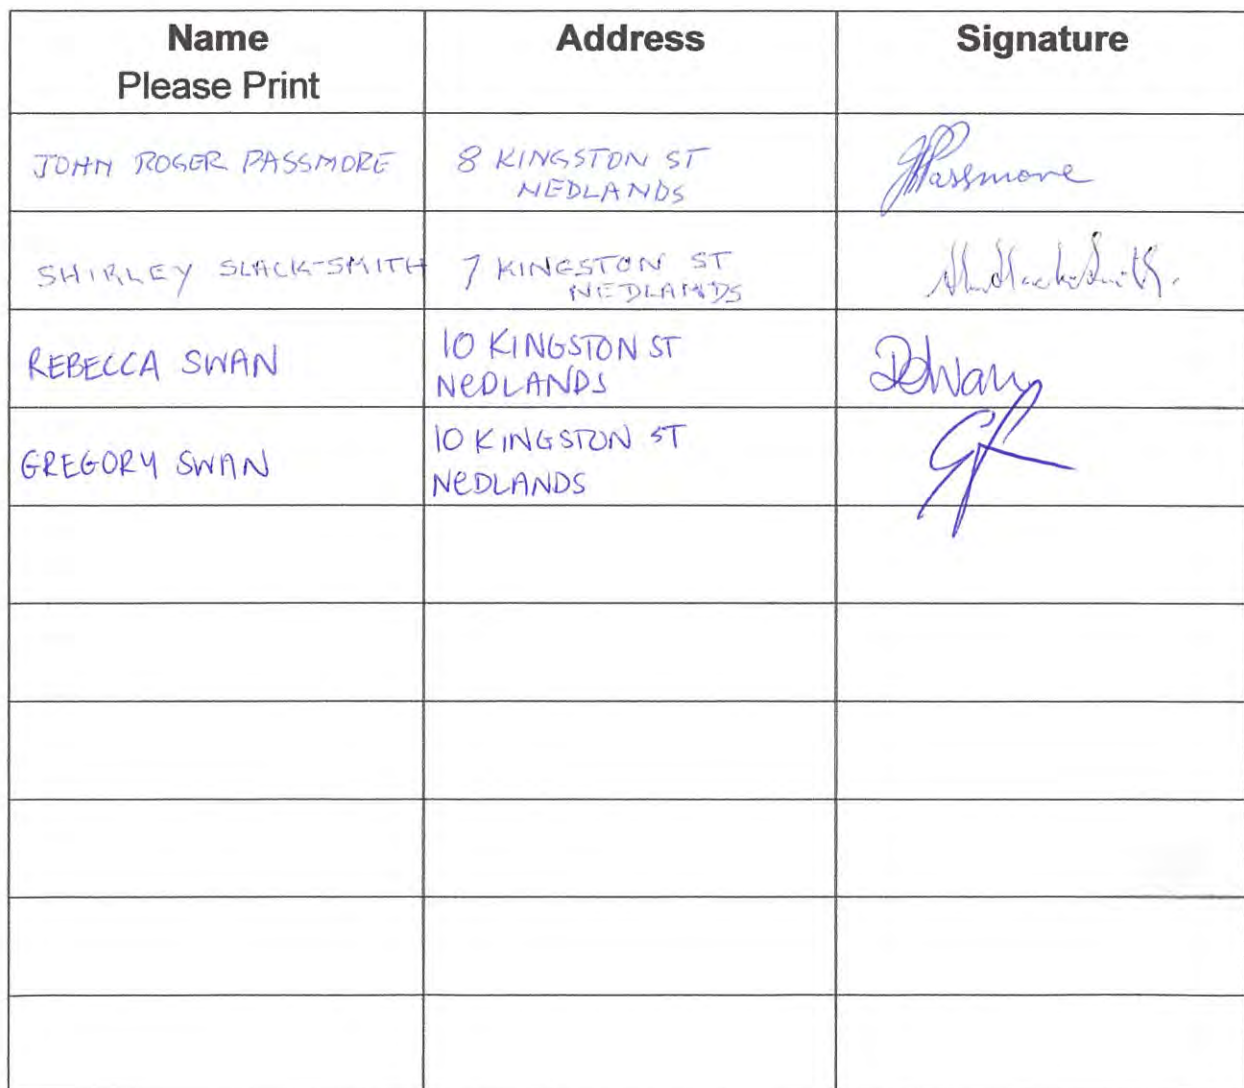 Name
Please Print
Address
Signature
JOHN ROGER PASSMORE
8 KINGSTON ST
NEDLANDS
JRPassmore
SHIRLEY SLACK-SMITH
7 KINGSTON ST
NEDLANDS
REBECCA SWAN
10 KINGSTON ST
NEDLANDS
GREGORY SWAN
10 KINGSTON ST
NEDLANDS